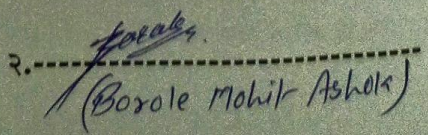 २.
(Borole Mohit Ashok)